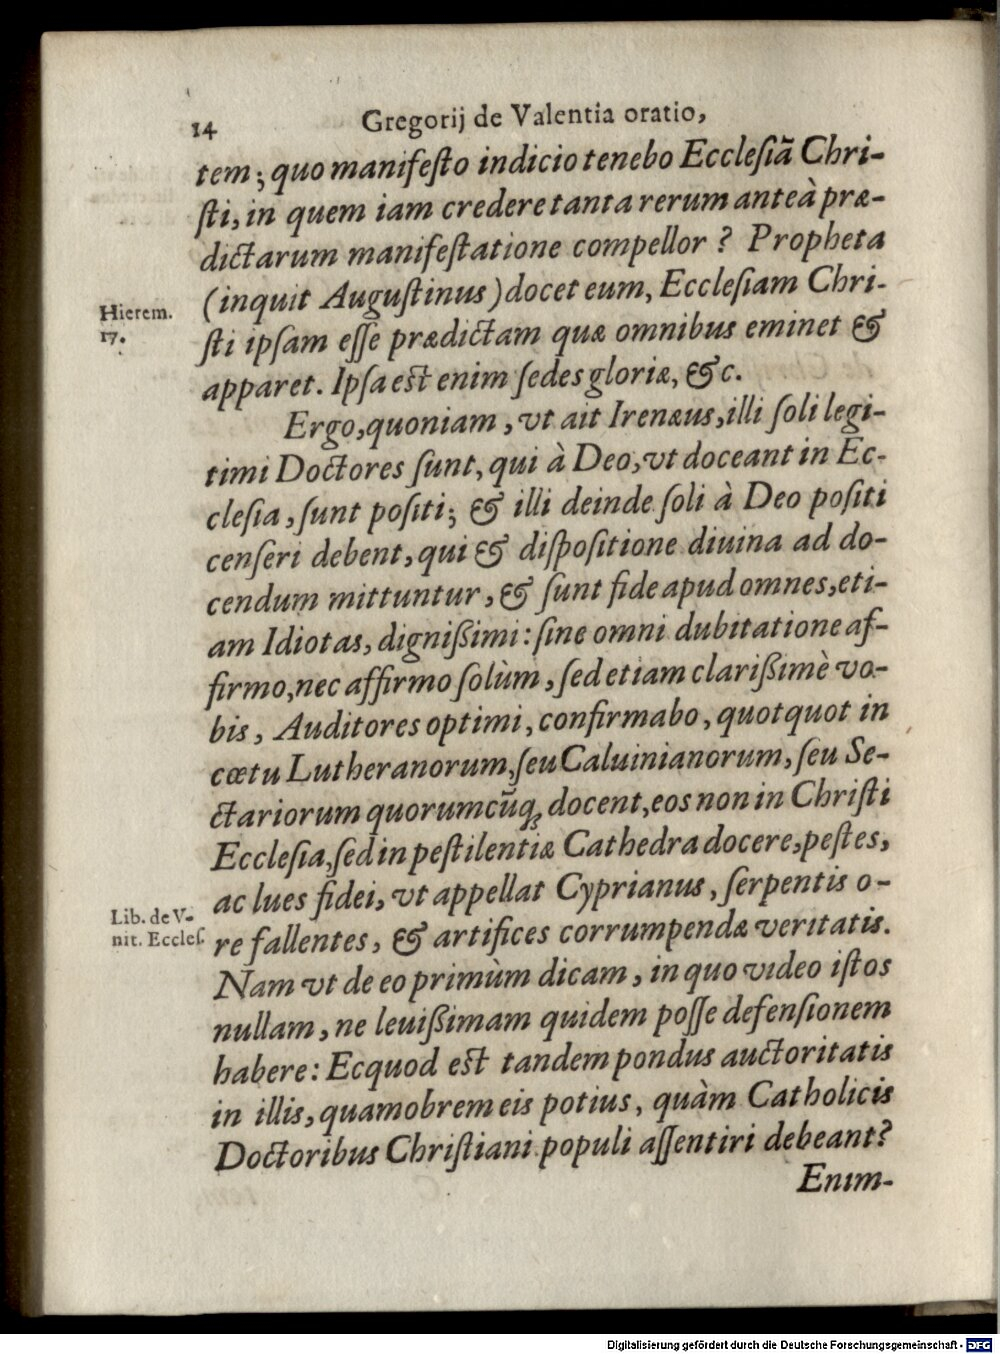 14
Gregorij de Valentia oratio,
tem; quo manifeſto indicio tenebo Eccleſiã Chri-
ſti, in quem iam credere tanta rerum anteà præ-
dictarum manifeſtatione compellor? Propheta
(inquit Auguſtinus) docet eum, Eccleſiam Chri-
Hierem.
17.
ſti ipſam eſſe prædictam quæ omnibus eminet &
apparet. Ipſa est enim ſedes gloriæ, &c.
Ergo, quoniam, vt ait Irenæus, illi ſoli legi-
timi Doctores ſunt, qui à Deo, vt doceant in Ec-
cleſia, ſunt poſiti; & illi deinde ſoli à Deo poſiti
cenſeri debent, qui & diſpoſitione diuina ad do-
cendum mittuntur, & ſunt fide apud omnes, eti-
am Idiotas, digniſsimi: ſine omni dubitatione af-
firmo, nec affirmo ſolùm, ſed etiam clariſsimè vo-
bis, Auditores optimi, confirmabo, quotquot in
cœtu Lutheranorum, ſeu Caluinianorum, ſeu Se-
ctariorum quorumcũq; docent, eos non in Chriſti
Eccleſia, ſed in peſtilentiæ Cathedra docere, peſtes,
ac lues fidei, vt appellat Cyprianus, ſerpentis o-
Lib. de V-
nit. Eccleſ.
re fallentes, & artifices corrumpendæ veritatis.
Nam vt de eo primùm dicam, in quo video iſtos
nullam, ne leuiſsimam quidem poſſe defenſionem
habere: Ecquod est tandem pondus auctoritatis
in illis, quamobrem eis potius, quàm Catholicis
Doctoribus Chriſtiani populi aſſentiri debeant?
Enim-
Digitalisierung gefördert durch die Deutsche Forschungsgemeinschaft - DFG